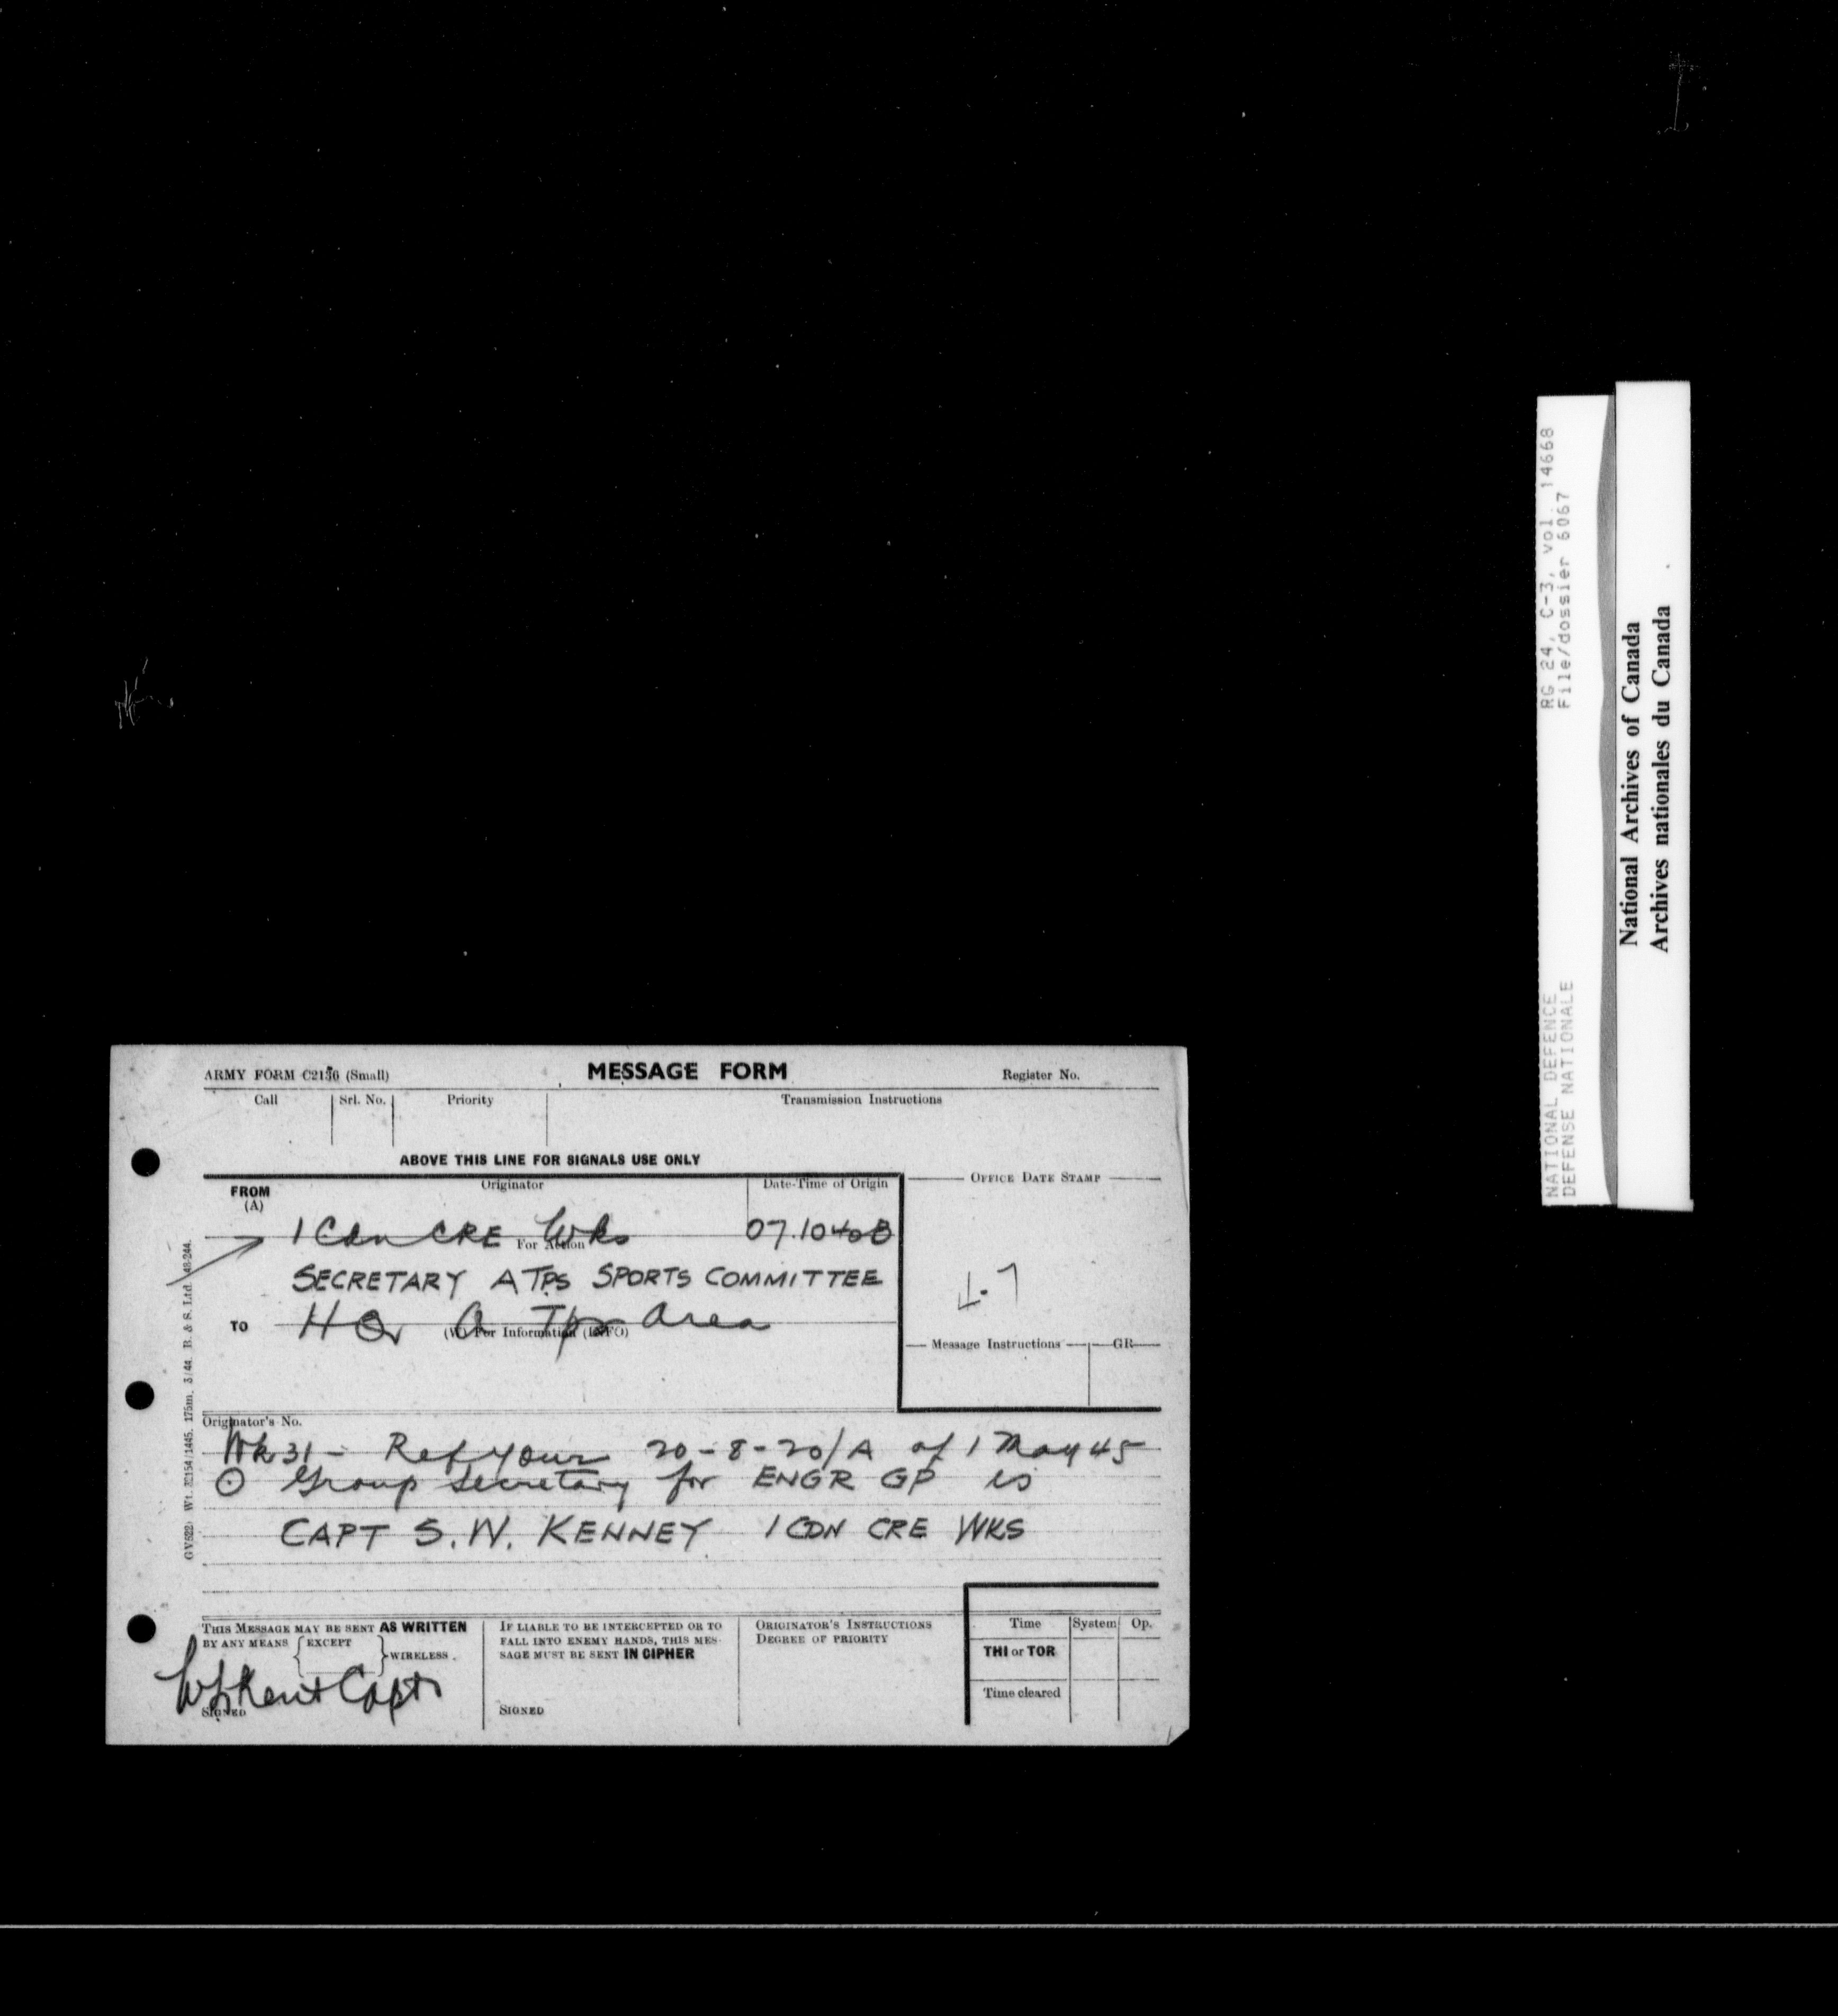 ARMY FORM C2136 (Small) MESSAGE FORM Register No.
Call Srl. No. Priority Transmission Instructions
ABOVE THIS LINE FOR SIGNALS USE ONLY
FROM (A) Originator Date-Time of Origin OFFICE DATE STAMP
1 Cdn CRE Wks 07.1040B
For Action
SECRETARY A TPS SPORTS COMMITTEE
TO HQ A Tps Area
(W) For Information (INFO)
Message Instructions GR
Originator's No.
Wk 31 - Ref your 20-8-20/A of 1 May 45
⊙ Group Secretary for ENGR GP is
CAPT S.W. KENNEY 1 CDN CRE WKS
THIS MESSAGE MAY BE SENT AS WRITTEN
BY ANY MEANS { EXCEPT } WIRELESS.
Kent Capt
SIGNED
IF LIABLE TO BE INTERCEPTED OR TO
FALL INTO ENEMY HANDS, THIS MES-
SAGE MUST BE SENT IN CIPHER
SIGNED
ORIGINATOR'S INSTRUCTIONS
DEGREE OF PRIORITY
Time System Op.
THI or TOR
Time cleared
RG 24, C-3, vol. 14668
File/dossier 6067
NATIONAL DEFENCE
DEFENSE NATIONALE
National Archives of Canada
Archives nationales du Canada